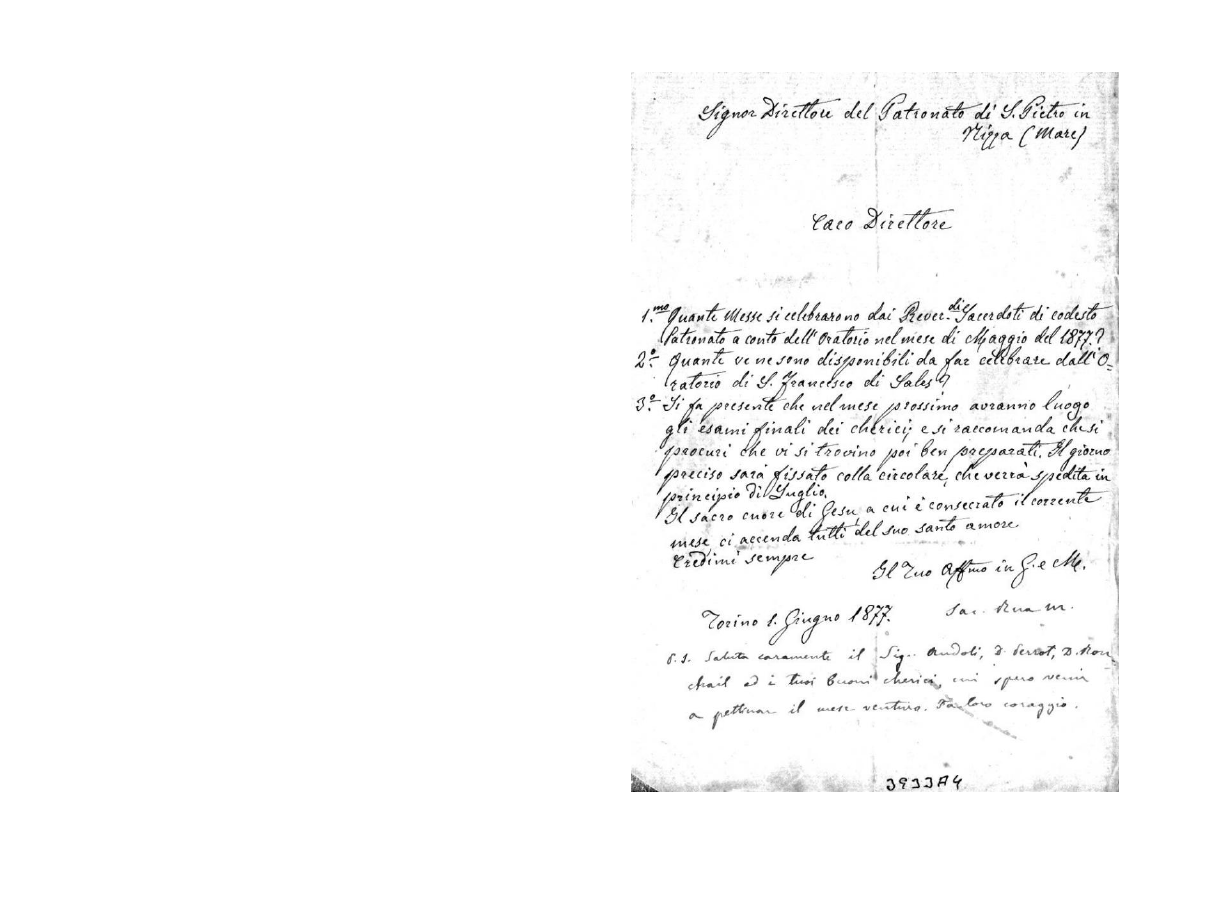 Signor Direttore del Patronato di S. Pietro in
Nizza (Mare)
Caro Direttore
1.mo Quante Messe si celebrarono dai Rever.di Sacerdoti di codesto
Patronato a conto dell'Oratorio nel mese di Maggio del 1877.?
2.o Quante ve ne sono disponibili da far celebrare dall'O=
ratorio di S. Francesco di Sales?
3.o Si fa presente che nel mese prossimo avranno luogo
gli esami finali dei chierici; e si raccomanda che si
procuri che vi si trovino poi ben preparati. Il giorno
preciso sarà fissato colla circolare, che verrà spedita in
principio di Luglio.
Il sacro cuore di Gesù, a cui è consecrato il corrente
mese, ci accenda tutti del suo santo amore.
Credimi sempre
Il Tuo Affmo in G. e M.
Sac. Rua M.
Torino 1. Giugno 1877.
P.S. Saluta caramente il Sig. D. Perrot, D. Ron
chail ed i tuoi buoni cherici, cui spero venir
a pettinar il mese venturo. Fa loro coraggio.
3933A4